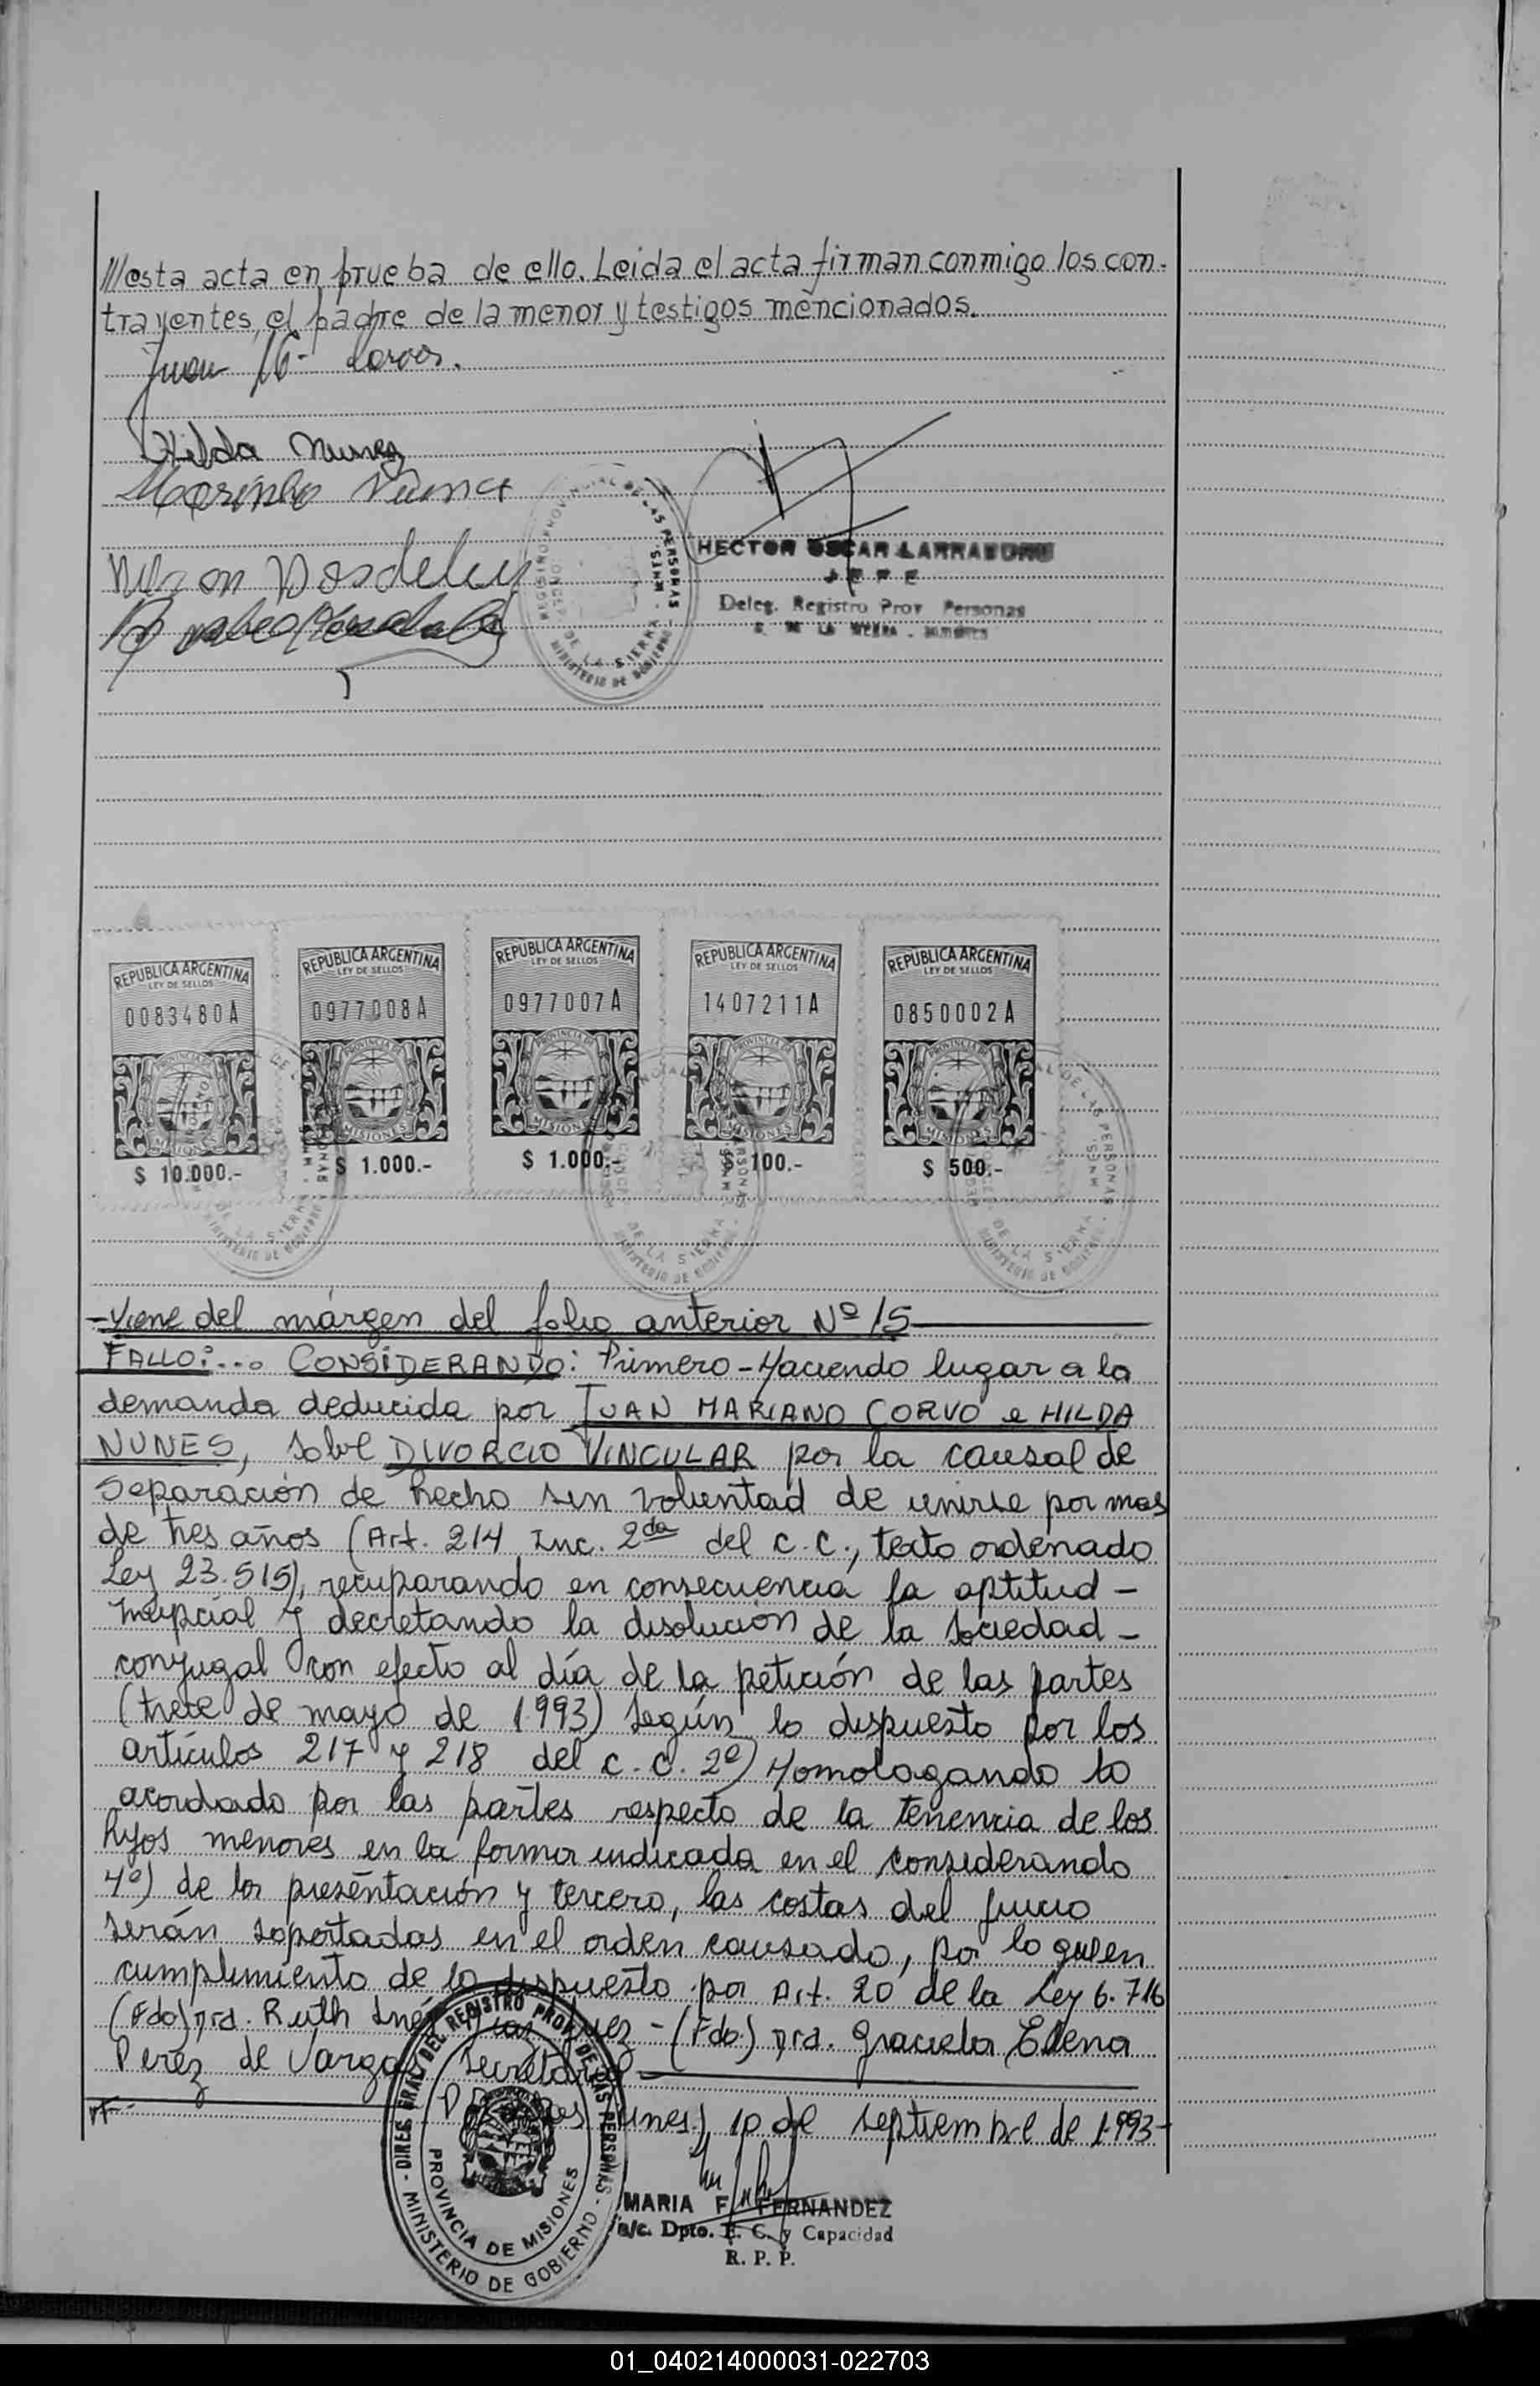 ///esta acta en prueba de ello. Leida el acta firman conmigo los con-
trayentes, el padre de la menor y testigos mencionados.
Juan M. Corvo.
Hilda Nunes
HECTOR OSCAR LARRABURU
JEFE
Deleg. Registro Prov Personas
REPUBLICA ARGENTINA
LEY DE SELLOS
0083480A
PROVINCIA DE
MISIONES
$ 10.000.-
REPUBLICA ARGENTINA
LEY DE SELLOS
0977008A
PROVINCIA DE
MISIONES
$ 1.000.-
REPUBLICA ARGENTINA
LEY DE SELLOS
0977007A
PROVINCIA DE
MISIONES
$ 1.000.-
REPUBLICA ARGENTINA
LEY DE SELLOS
1407211A
PROVINCIA DE
MISIONES
$ 100.-
REPUBLICA ARGENTINA
LEY DE SELLOS
0850002A
PROVINCIA DE
MISIONES
$ 500.-
-Viene del márgen del folio anterior Nº 15
FALLO:... CONSIDERANDO: Primero - Haciendo lugar a la
demanda deducida por JUAN MARIANO CORVO e HILDA
NUNES, sobre DIVORCIO VINCULAR por la causal de
separación de hecho sin voluntad de unirse por mas
de tres años (Art. 214 Inc. 2da del C.C., texto ordenado
Ley 23.515), recuparando en consecuencia la aptitud -
nupcial y decretando la disolución de la sociedad -
conyugal con efecto al día de la petición de las partes
(trece de mayo de 1993) según lo dispuesto por los
artículos 217 y 218 del C.C. 2º) Homologando lo
acordado por las partes respecto de la tenencia de los
hijos menores en la forma indicada en el considerando
4º) de la presentación y tercero, las costas del juicio
serán soportadas en el orden causado, por lo que en
cumplimiento de lo dispuesto por Art. 20 de la Ley 6.716
(Fdo) Dra. Ruth Inés Juez - (Fdo.) Dra. Graciela Elena
Perez de Vargas Secretaria
Posadas (Mnes.), 10 de septiembre de 1.993-
DIREC. GRAL. DEL REGISTRO PROV. DE LAS PERSONAS
PROVINCIA DE MISIONES
- MINISTERIO DE GOBIERNO -
MARIA F. FERNANDEZ
a/c. Dpto. E. C. y Capacidad
R. P. P.
01_040214000031-022703